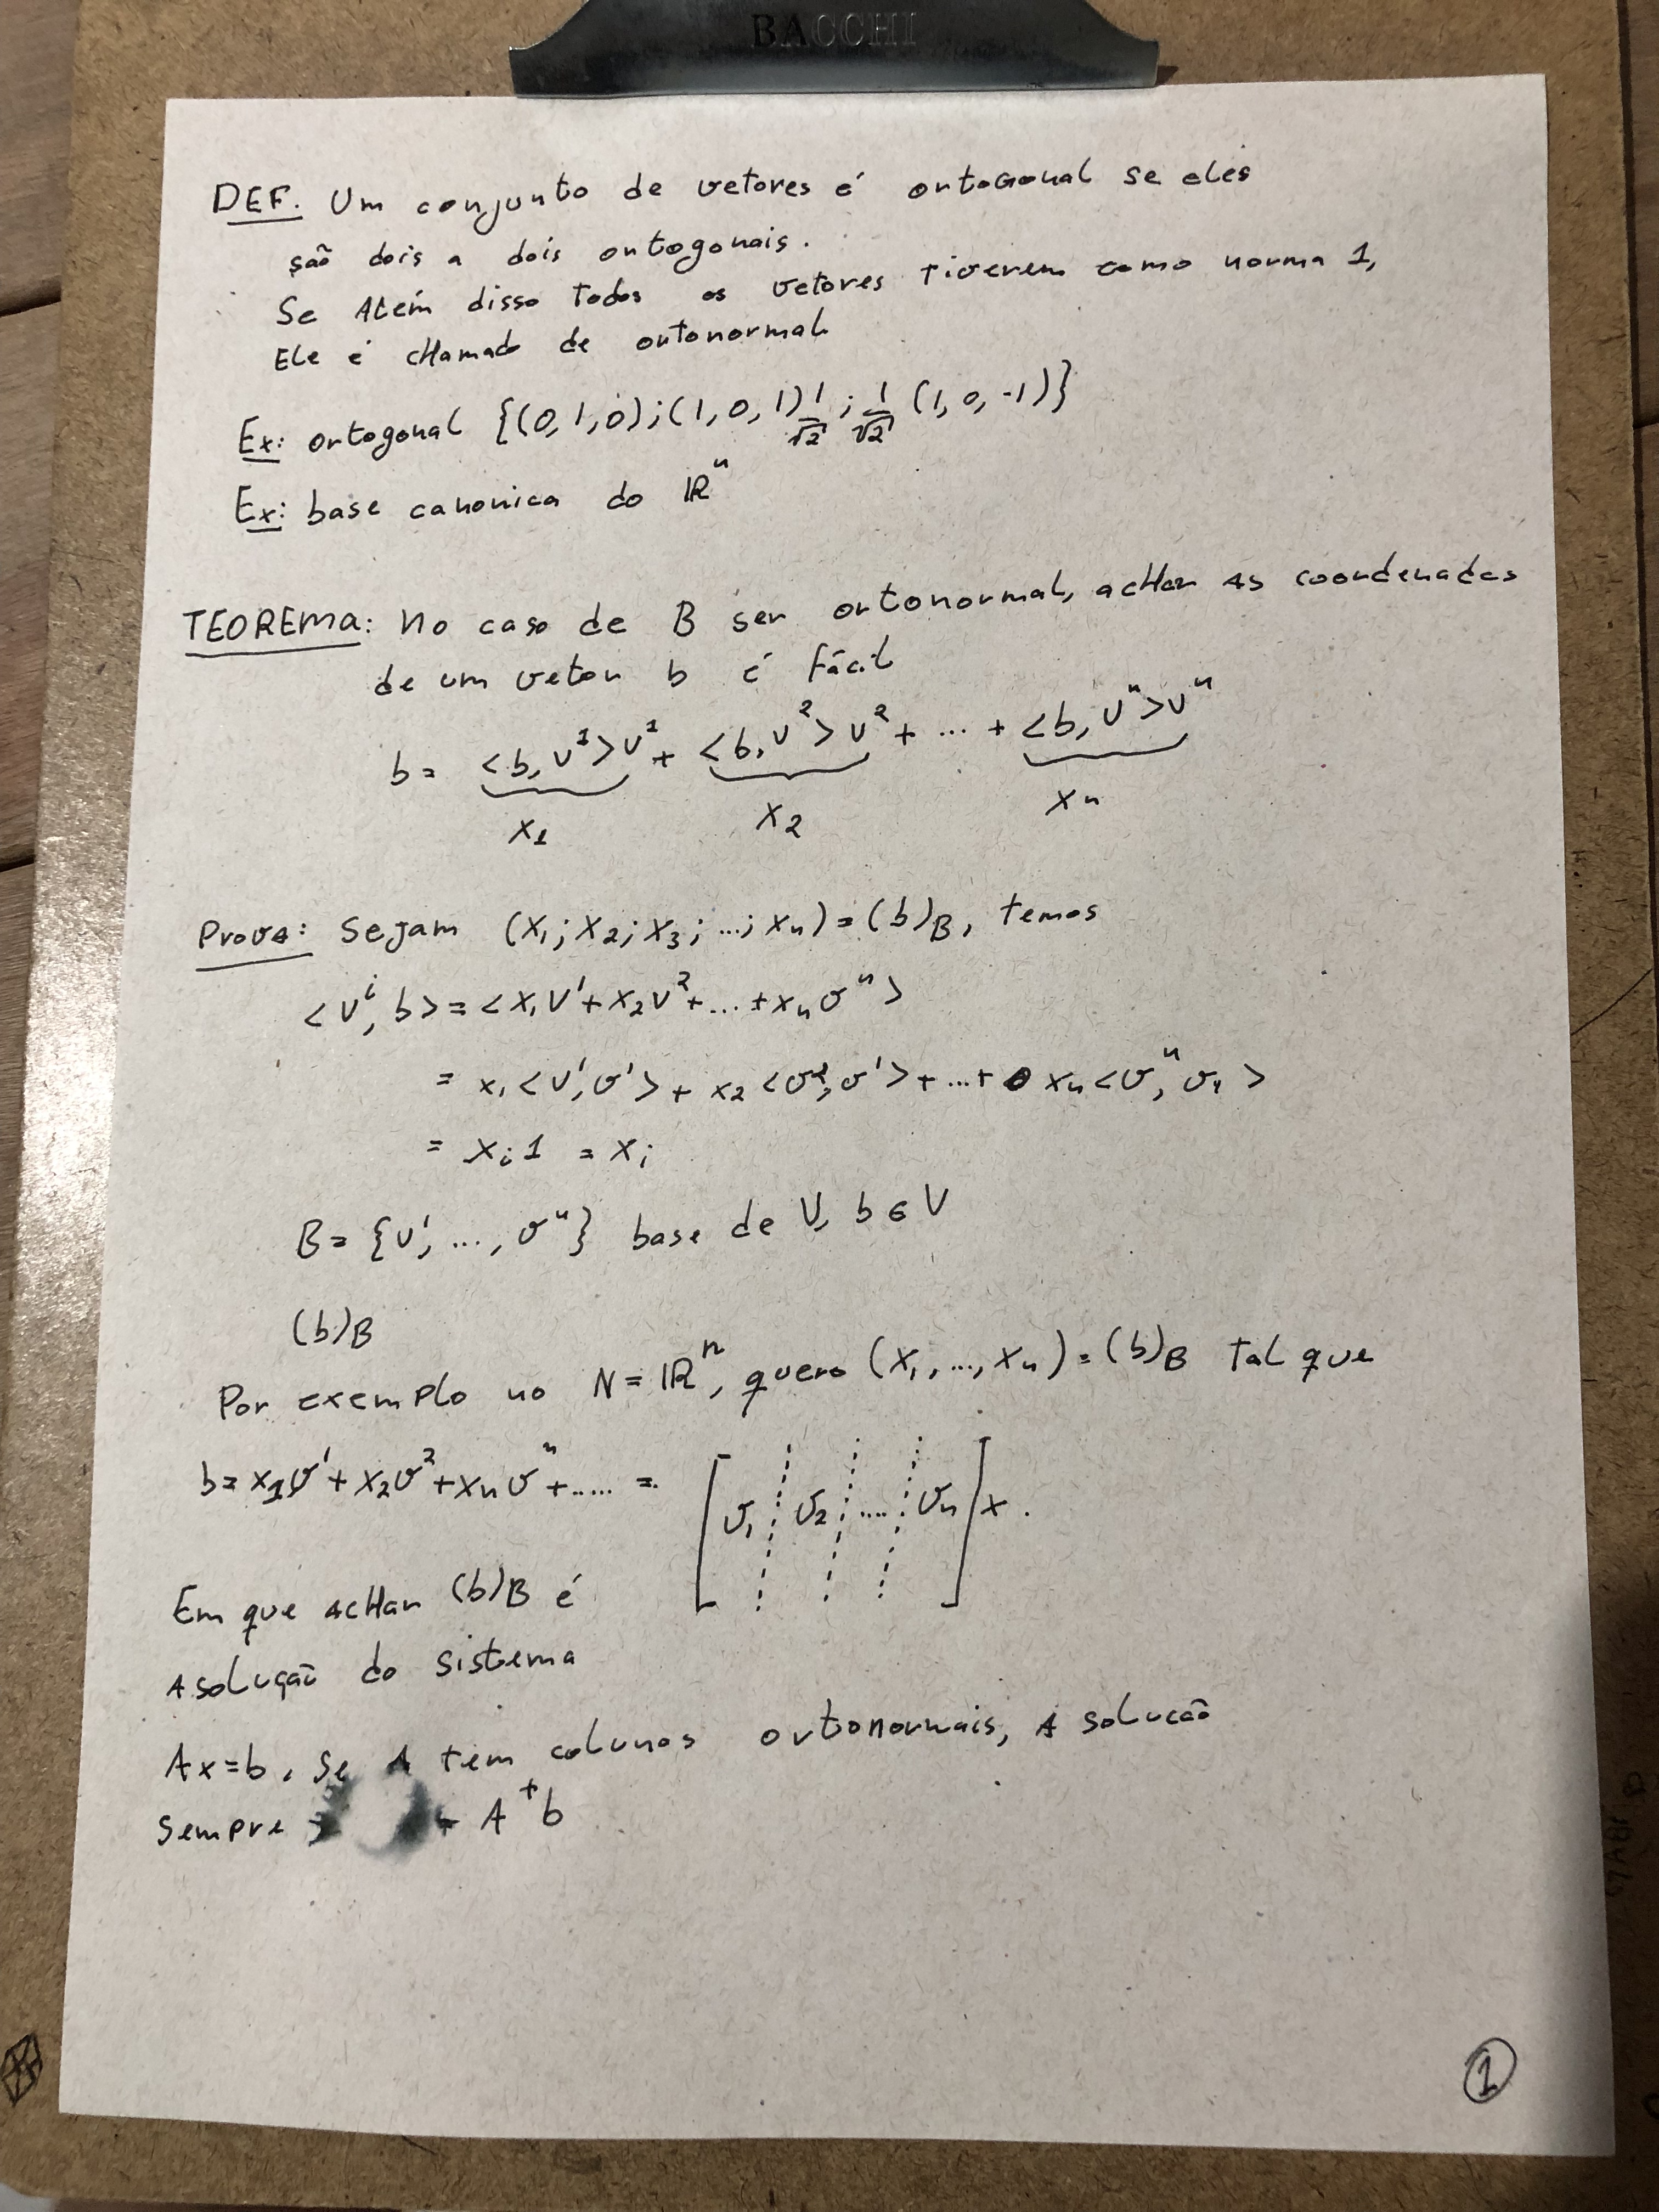 BACCHI
DEF. Um conjunto de vetores é ortogonal se eles
são dois a dois ortogonais.
Se Além disso todos os vetores tiverem como norma 1,
Ele é chamado de ortonormal
Ex: ortogonal {(0,1,0);(1,0,1)1/√2;1/√2(1,0,-1)}
Ex: base canonica do ℝⁿ
TEOREMA: No caso de B ser ortonormal, achar as coordenadas
de um vetor b é fácil
b= <b,v¹>v¹+<b,v²>v²+ ... +<b,vⁿ>vⁿ
x₁ x₂ xₙ
Prova: Sejam (x₁;x₂;x₃;...;xₙ)=(b)B, temos
<vⁱ,b>=<x₁v¹+x₂v²+...+xₙvⁿ>
= x₁<v¹,v¹>+x₂<v²,v¹>+...+ xₙ<vⁿ,v₁>
= xᵢ1 = xᵢ
B= {v¹,...,vⁿ} base de V, b∈V
(b)B
Por exemplo no N=ℝⁿ, quero (x₁,...,xₙ)=(b)B tal que
b=x₁v¹+x₂v²+xₙvⁿ+..... = [v₁ ⋮ v₂ ⋮ .... ⋮ vₙ]x.
Em que achar (b)B é
A solução do sistema
Ax=b, se A tem colunas ortonormais, A solução
sempre A⁺b
1